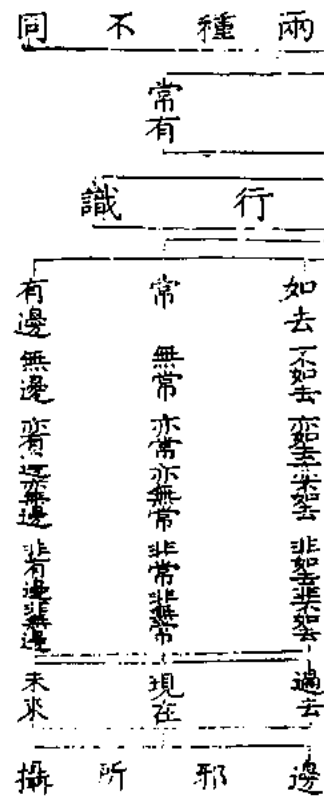 兩種不同
常有
行識
如去
不如去
亦如去亦不如去
非如去非不如去
過去
常
無常
亦常亦無常
非常非無常
現在
有邊
無邊
亦有邊亦無邊
非有邊非無邊
未來
邊邪所攝